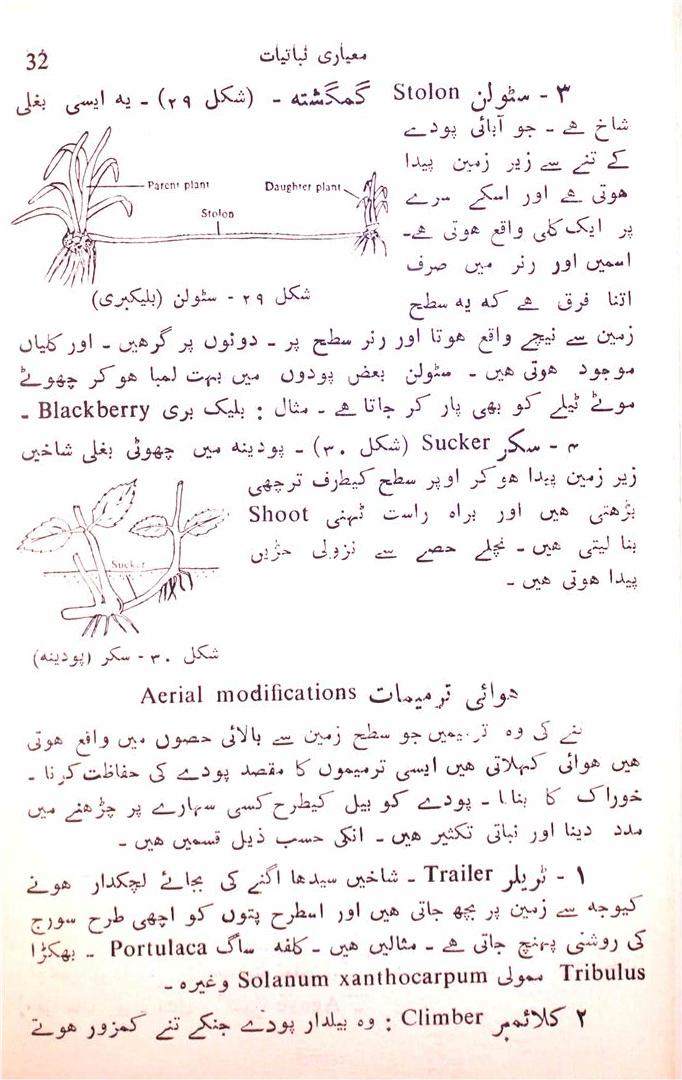 32
معیاری نباتیات
۳ - سٹولن Stolon گمگشته - (شکل ۲۹) - یه ایسی بغلی
شاخ ھے - جو آبائی پودے
کے تنے سے زیر زمین پیدا
ھوتی ھے اور اسکے سرے
پر ایک کلی واقع ھوتی ھے-
اسمیں اور رنر میں صرف
اتنا فرق ھے که یه سطح
Parent plant
Daughter plant
Stolon
شکل ۲۹ - سٹولن (بلیکبری)
زمین سے نیچے واقع ھوتا اور رنر سطح پر - دونوں پر گرھیں - اور کلیاں
موجود ھوتی ھیں - سٹولن بعض پودوں میں بہت لمبا ھو کر چھوٹے
موٹے ٹیلے کو بھی پار کر جاتا ھے - مثال : بلیک بری Blackberry -
۴ - سکر Sucker (شکل ۳۰) - پودینه میں چھوٹی بغلی شاخیں
زیر زمین پیدا ھو کر اوپر سطح کیطرف ترچھی
بڑھتی ھیں اور براہ راست ٹہنی Shoot
بنا لیتی ھیں - نچلے حصے سے نزولی جڑیں
پیدا ھوتی ھیں -
Sucker
شکل ۳۰ - سکر (پودینه)
ھوائی ترمیمات Aerial modifications
تنے کی وہ ترمیمیں جو سطح زمین سے بالائی حصوں میں واقع ھوتی
ھیں ھوائی کہلاتی ھیں ایسی ترمیموں کا مقصد پودے کی حفاظت کرنا -
خوراک کا بنانا - پودے کو بیل کیطرح کسی سہارے پر چڑھنے میں
مدد دینا اور نباتی تکثیر ھیں - انکی حسب ذیل قسمیں ھیں -
۱ - ٹریلر Trailer - شاخیں سیدھا اگنے کی بجائے لچکدار ھونے
کیوجه سے زمین پر بچھ جاتی ھیں اور اسطرح پتوں کو اچھی طرح سورج
کی روشنی پہنچ جاتی ھے - مثالیں ھیں - کلفه ساگ Portulaca - بھکڑا
Tribulus ممولی Solanum xanthocarpum وغیرہ -
۲ کلائمبر Climber : وہ بیلدار پودے جنکے تنے کمزور ھوتے